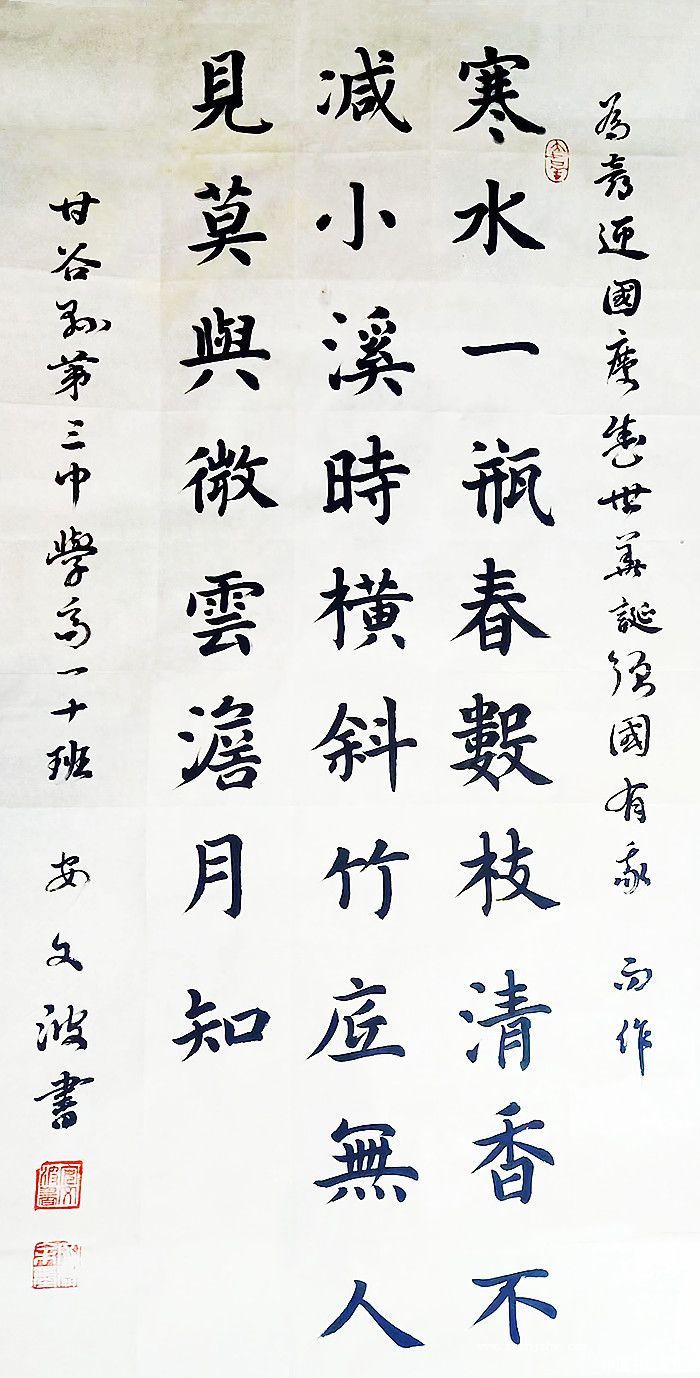 為喜迎國慶盛世華誕强國有我 而作
寒水一瓶春數枝清香不
减小溪時橫斜竹底無人
見莫與微雲澹月知
甘谷縣第三中學高一十班 安文波書